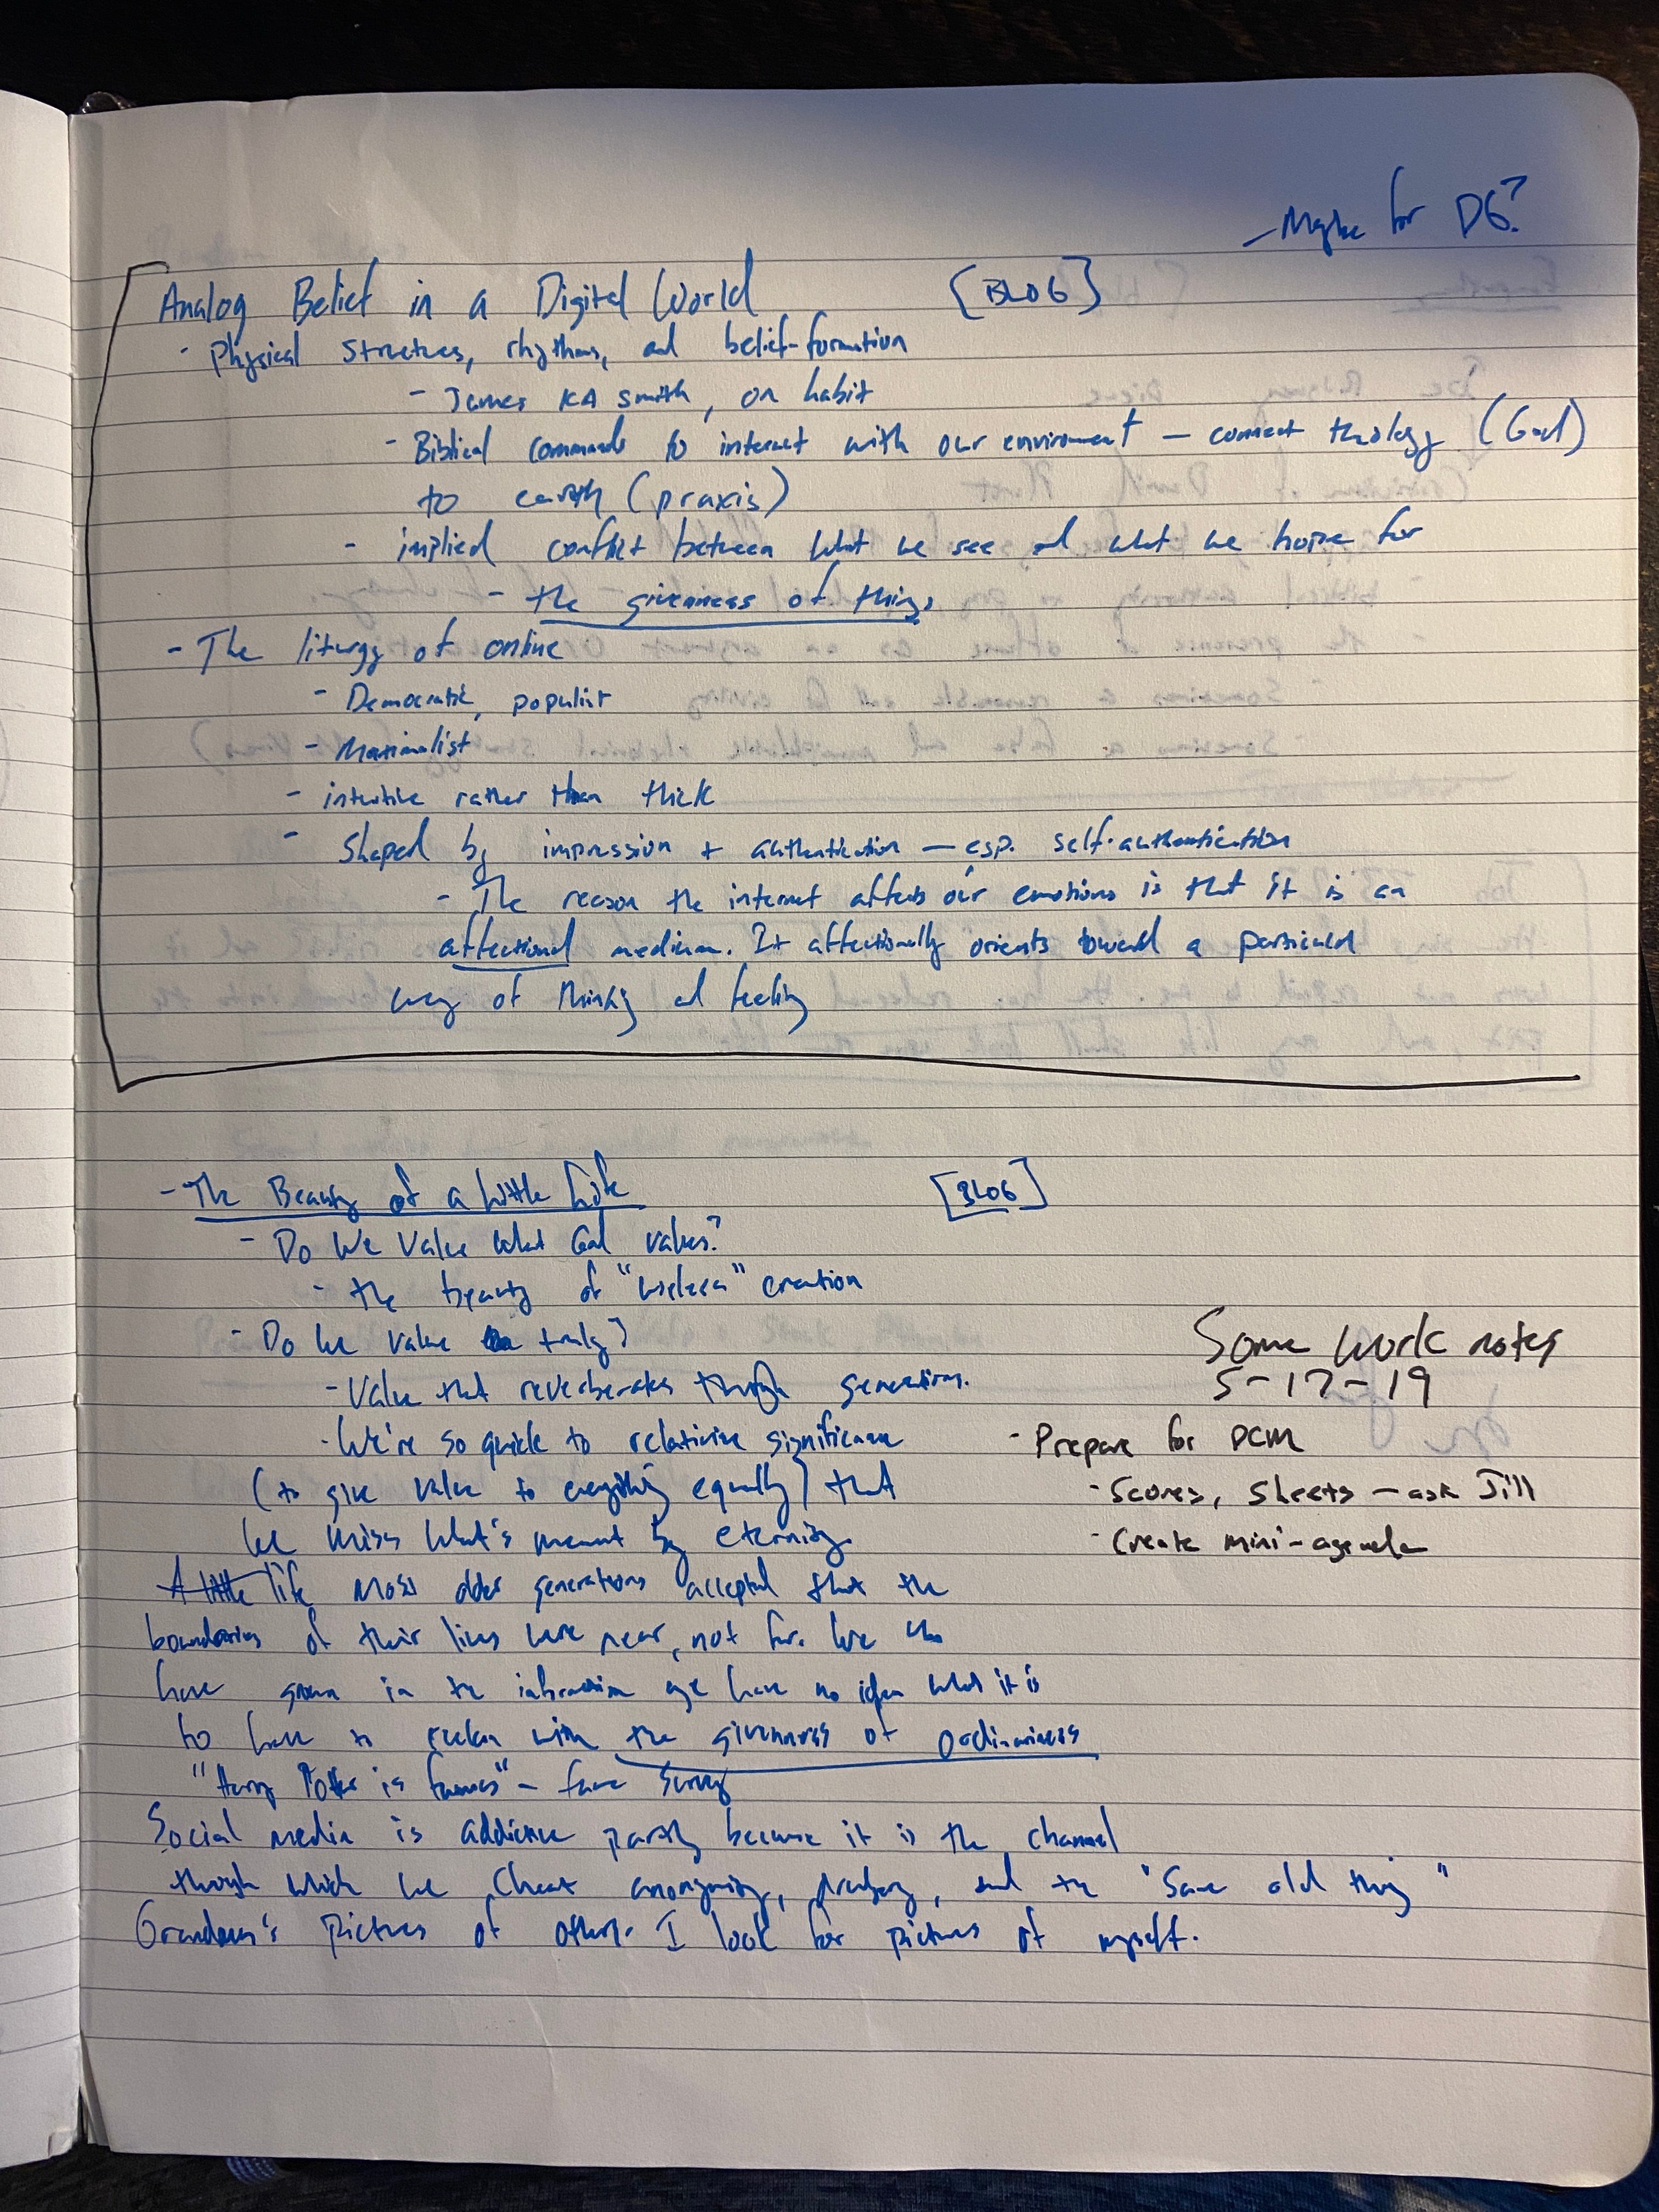 - Maybe for DG?
Analog Belief in a Digital World [BLOG]
- Physical structures, rhythms, and belief-formation
- James KA Smith, on habit
- Biblical commands to interact with our environment - connect theology (God)
to earth (praxis)
- implied conflict between what we see and what we hope for
- the giveness of things
- The liturgy of online
- Democratic, populist
- Maximalist
- intuitive rather than thick
- Shaped by impression + authentication - esp. self-authentication
- The reason the internet affects our emotions is that it is an
affectional medium. It affectionally orients toward a particular
way of thinking and feeling
- The Beauty of a Little Life [BLOG]
- Do We Value What God values?
- the beauty of "useless" creation
- Do we value truly?
- Value that reverberates through generations.
- We're so quick to relativize significance
(to give value to everything equally) that
we miss what's meant by eternity.
A little life Most older generations accepted that the
boundaries of their lives were near, not far. We who
have grown in the information age have no idea what it is
to have to reckon with the givenness of ordinariness
"Harry Potter is famous" - fame survey
Social media is addictive partly because it is the channel
through which we cheat anonymity, and the "Same old thing"
Grandma's pictures of others. I look for pictures of myself.
Some work notes
5-17-19
- Prepare for DCM
- Scores, sheets - ask Jill
- Create mini-agenda